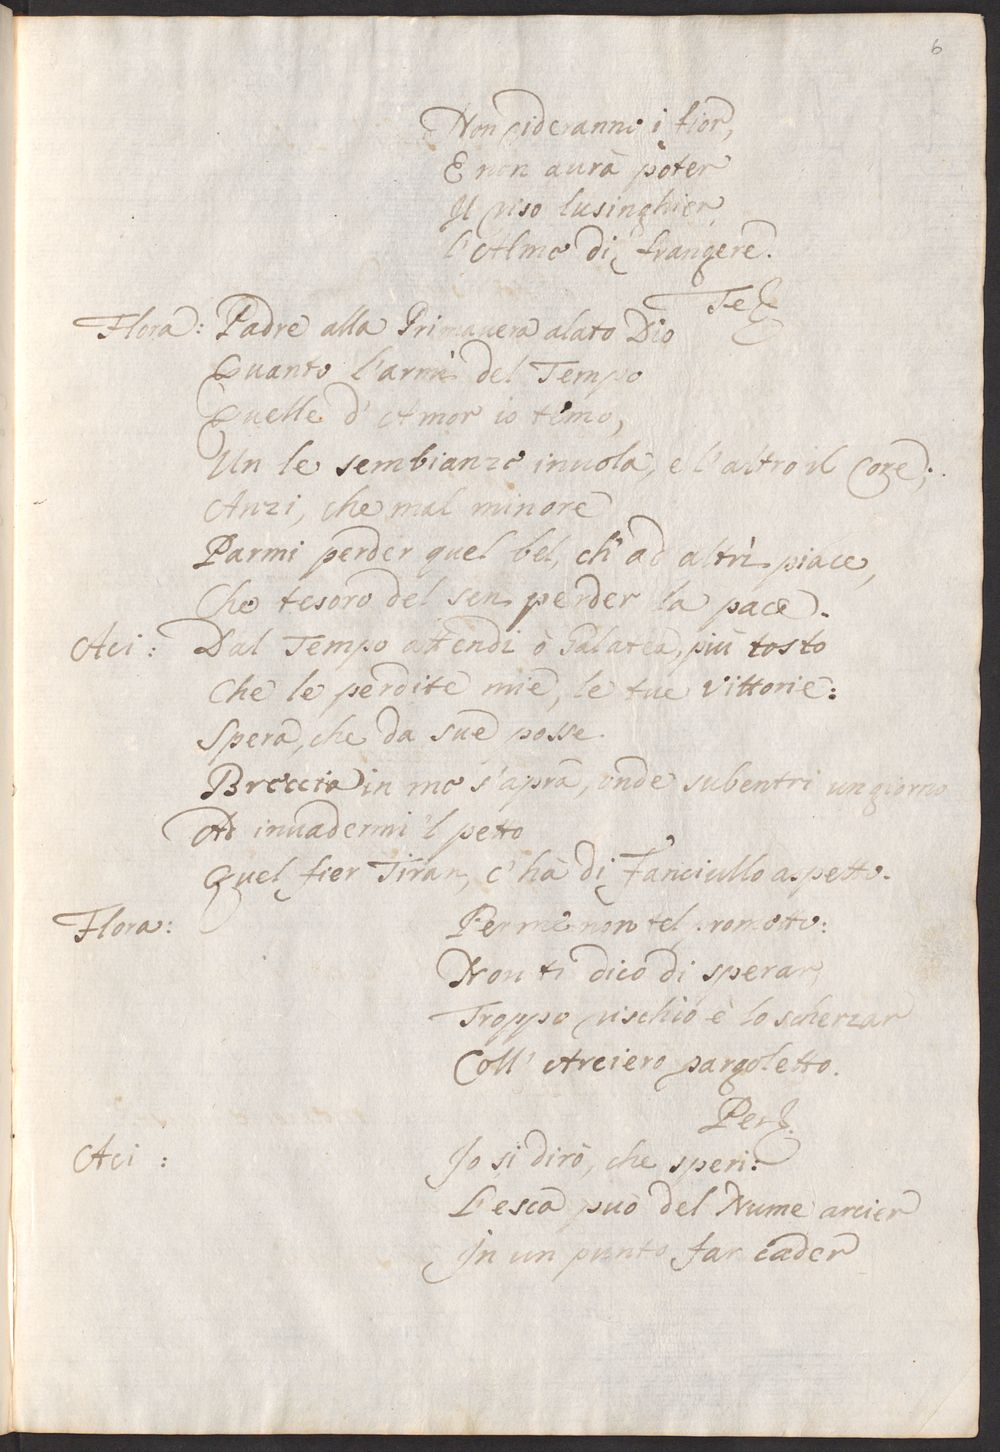 6
Non rideranno i fior,
E non aurà poter
Il riso lusinghier
l'Alme di frangere.
Te
Flora: Padre alla Primavera alato Dio
Quanto l'armi del Tempo
Quelle d'Amor io temo,
Un le sembianze inuola, e l'altro il Core;
Anzi, che mal minore
Parmi perder quel bel, ch'ad altri piace,
Che tesoro del sen perder la pace.
Aci: Dal Tempo attendi ò Galatea, più tosto
Che le perdite mie, le tue Vittorie:
Spera, che da sue posse
Breccia in me s'aprà, onde subentri un giorno
Ad invadermi 'l petto
Quel fier Tiran, c'hà di Fanciullo aspetto.
Flora: Per me non tel prometto:
Non ti dico di sperar,
Troppo rischio è lo scherzar
Coll' Arciero pargoletto.
Per
Aci: Io si dirò, che speri:
L'esca può del Nume arcier
In un punto far cader